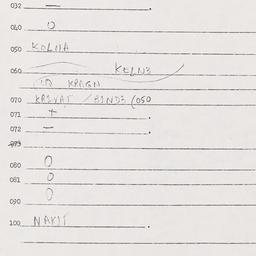 032 — .
040 0
050 KOLMA
060 KELNB
KRAGN
070 KRIVAT /BINDB (050
071 + .
072 — .
073
080 0
081 0
0
090
100 NAKIT .